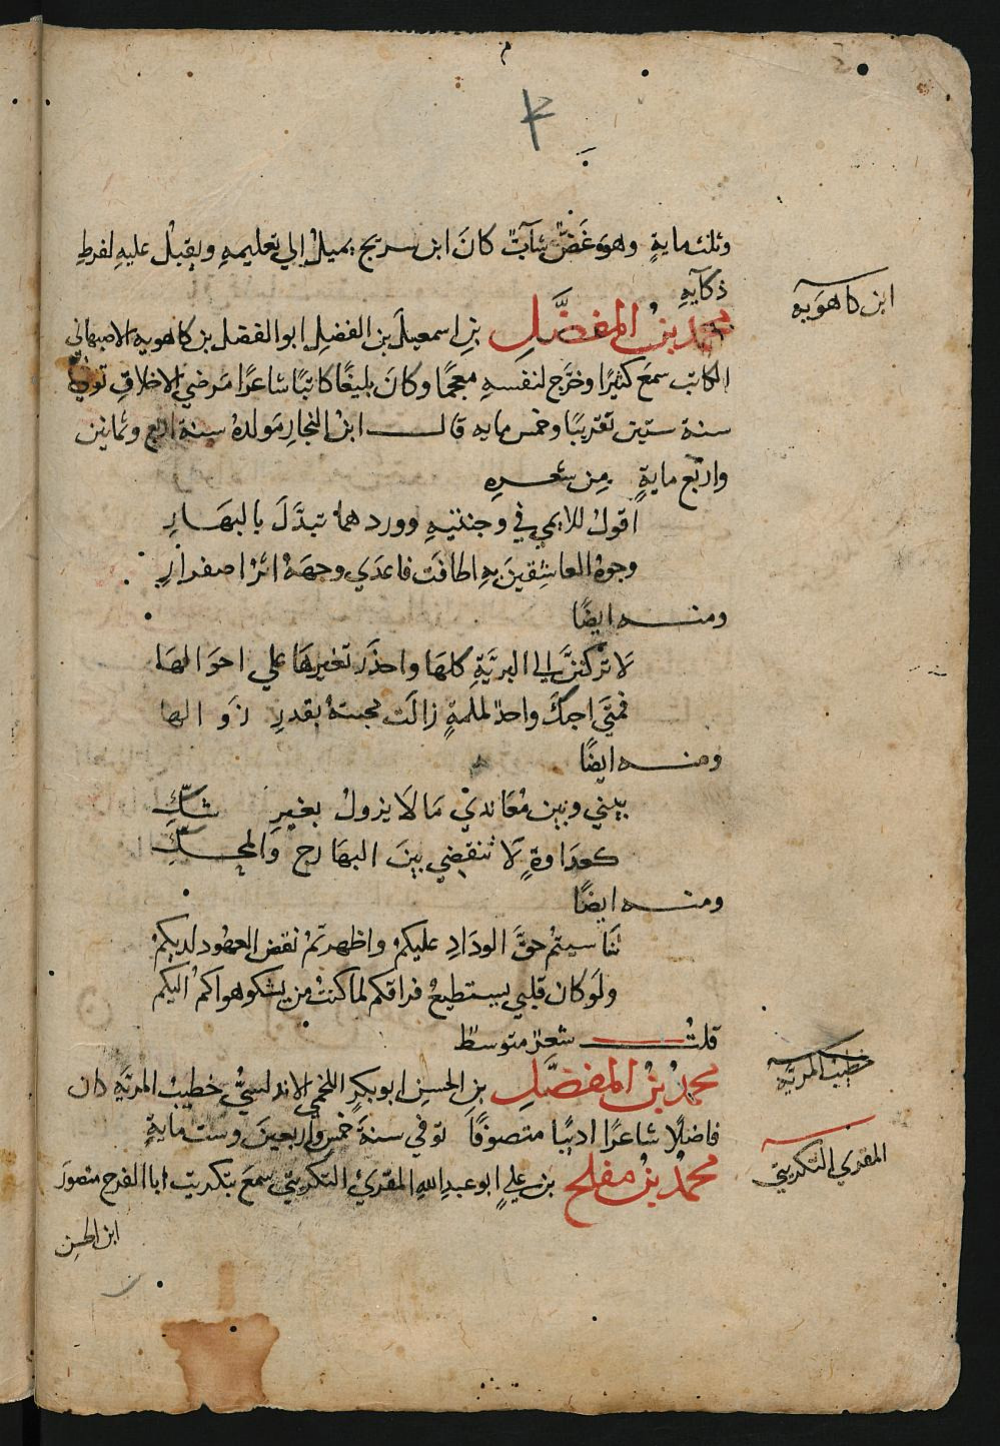 وثلث ماية وهو غَضّ شابّ كانَ ابن سريج يميل الي تعليمه ويقبل عليه لفرط
ذكآيه
ابن كاهويه
محمد بنُ المفضَّلِ بن اسمعيل بن الفضل ابو الفضل بن كاهويه الاصبهاني
الكاتب سمعَ كثيرًا وخرَّج لنفسه معجمًا وكانَ بليغًا كاتبًا شاعرًا مَرضي الاخلاقِ توفي
سنة ستين تقريبًا وخمس مايه قال ابن النجار مَولدهُ سنة اربع وثمانين
واربع ماية من شعره
اقولُ للايمي في وجنتيه ووردهما تبدَّلَ بالبهَارِ
وجوهُ العاشقينَ به اطافَت فاعدَي وجههُ اثرُ اصفرارِ
ومنه ايضًا
لَا تركننَّ الي البريَّةِ كلهَا واحذَر تغيرهَا علي احوَالهَا
فمتَي احبكَ واحدٌ لملمةٍ زالَت محبتهُ بقدرِ زَوالها
ومنه ايضًا
بيني وبين مُعَانديْ مَا لَا يزولُ بغيرِ شكِّ
كعدَاوةٍ لَا تنقضي بينَ البهَارج وَالمحكِّ
ومنه ايضًا
تنَاسيتمُ حقَّ الودَادِ عليكمُ واظهرتمُ نقضَ العهُود لديكمُ
ولَو كان قلبي يستطيعُ فراقكم لما كنتُ من يشكو هواكمُ اليكم
قلتُ شعرٌ متوسط
خطيب المريّه
محمدُ بنُ المفضَّلِ بن الحسن ابو بكرٍ اللخمي الاندلسيُّ خطيبُ المريَّه كان
فاضلًا شاعرًا اديبًا متصوفًا توفي سنةَ خمس واربعينَ وست مايةٍ
المقري التكريتي
محمدُ بنُ مفلح بن عليٍ ابو عبد اللهِ المقرئُ التكريتي سمعَ بتكريت ابا الفرج منصورَ
ابن الحسن